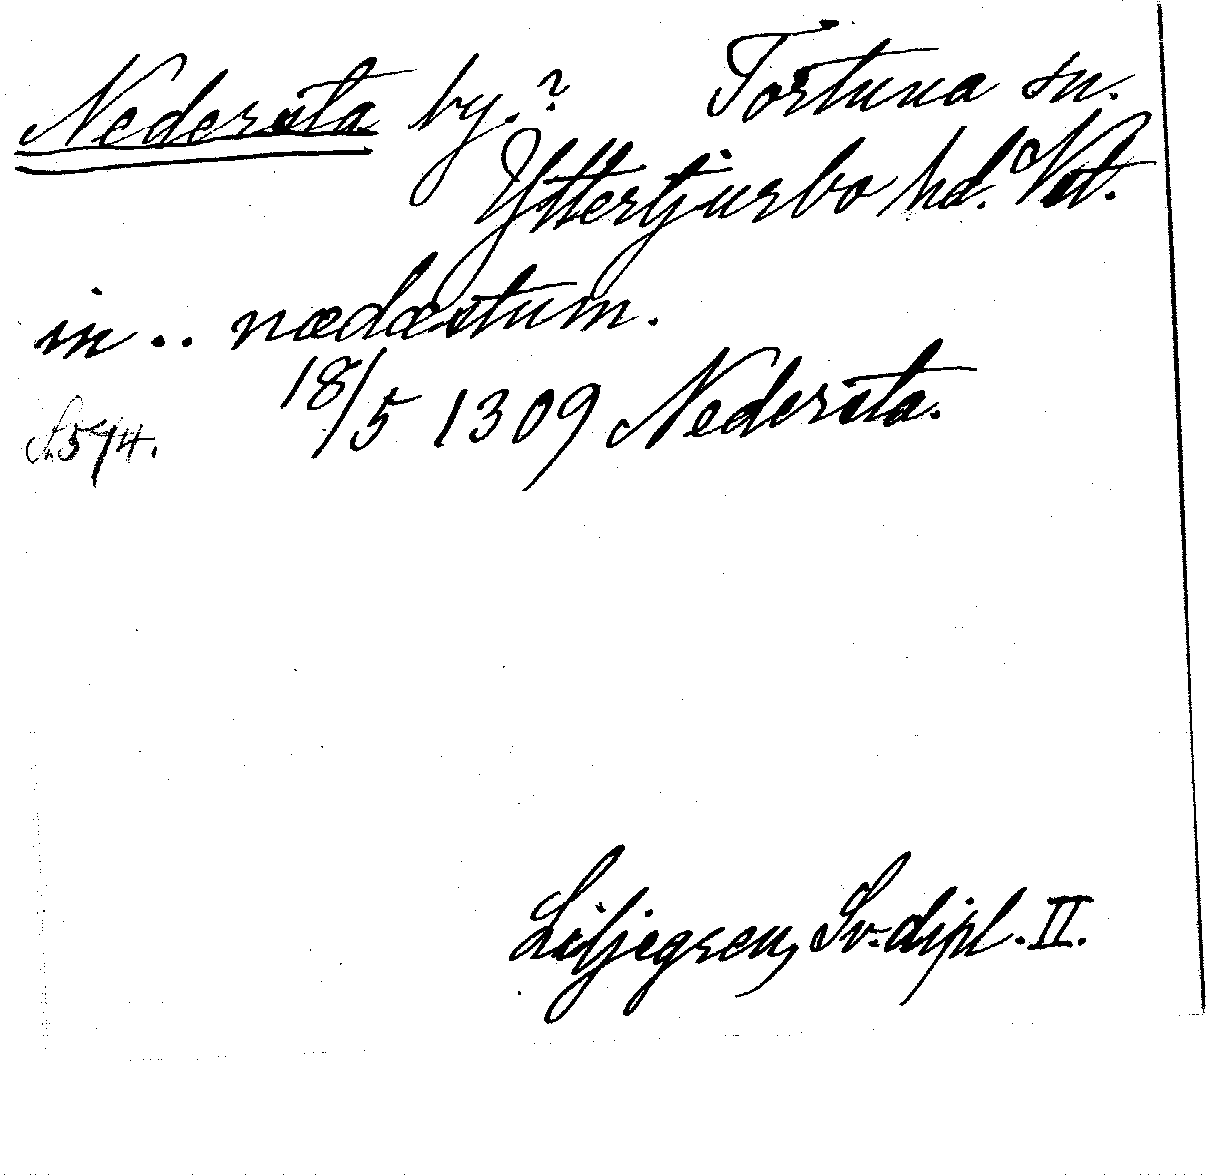 Nedersta by.? Tortuna sn.
Yttertjurbo hd. Vst.
in .. nædæstum.
18/5 1309 Nedersta.
S. 574.
Liljegren, Sv. dipl. II.